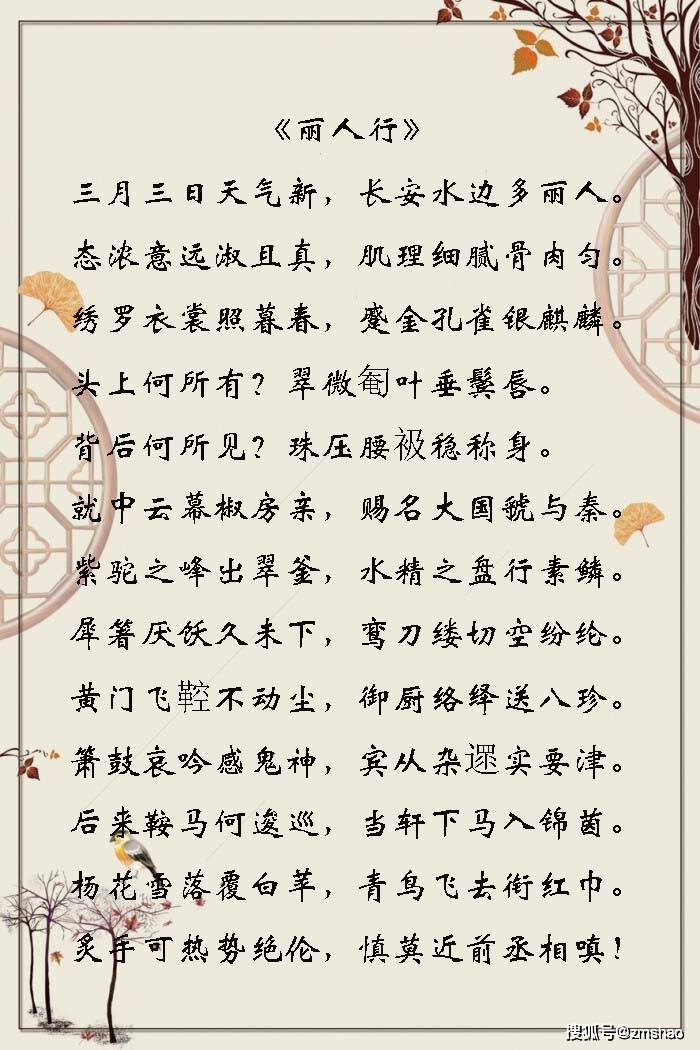 《丽人行》
三月三日天气新，长安水边多丽人。
态浓意远淑且真，肌理细腻骨肉匀。
绣罗衣裳照暮春，蹙金孔雀银麒麟。
头上何所有？翠微㔩叶垂鬓唇。
背后何所见？珠压腰衱稳称身。
就中云幕椒房亲，赐名大国虢与秦。
紫驼之峰出翠釜，水精之盘行素鳞。
犀箸厌饫久未下，鸾刀缕切空纷纶。
黄门飞鞚不动尘，御厨络绎送八珍。
箫鼓哀吟感鬼神，宾从杂遝实要津。
后来鞍马何逡巡，当轩下马入锦茵。
杨花雪落覆白苹，青鸟飞去衔红巾。
炙手可热势绝伦，慎莫近前丞相嗔！
搜狐号@zmshao